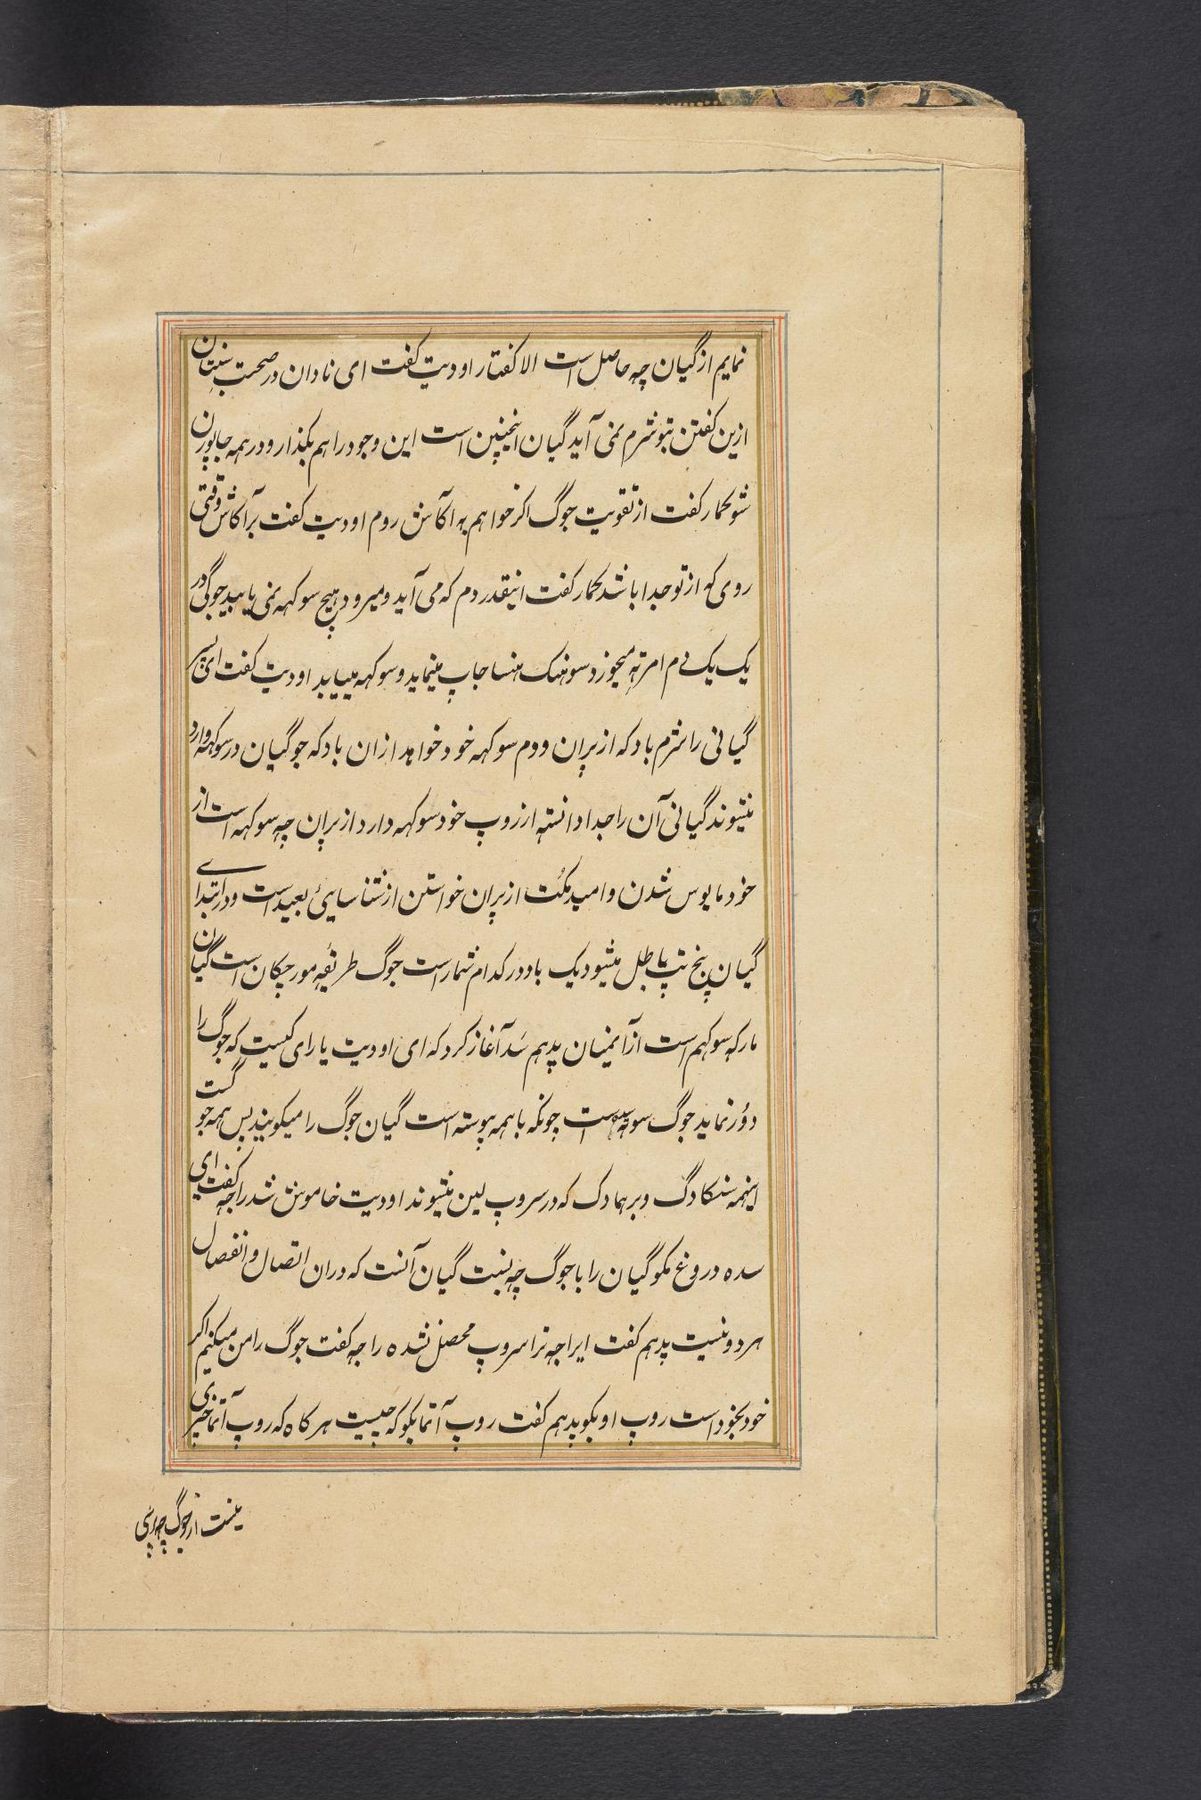 نمایم از گیان چه حاصل است الا کفتار اودیت کفت ای نادان در صحبت سنتان
ازین کفتن تبو شرم نمی آید گیان اینچنین است این وجود را هم بکذار و در همه جا پورن
شو کمار کفت از تقویت جوگ اکر خواهم به آکاش روم اودیت کفت بر آکاش وقتی
روی که از تو جدا باشد کمار کفت اینقدر دم که می آید و میرود هیچ سوکهه نمی یابید جوگی در
یک یک دم امرته میخورد سوهنک هنسا جاپ مینماید و سوکهه مییابد اودیت کفت ای پسر
گیانی را شرم باد که از پران و دم سوکهه خود خواهد از ان باد که جوگیان در سوکهه وارد
نیشوند گیانی آن را جدا دانسته از روپ خود سوکهه دارد از پران چه سوکهه است از
خود مایوس شدن و امید مکت از پران خواستن از شناسایی بعید است و در ابتدای
گیان پنج تت باطل میشود یک باد در کدام شمار است جوگ طریقه مورچکان است گیان
مارک سوکهم است از آنمیان پدهم سد آغاز کرد که ای اودیت یارای کیست که جوگ را
دور نماید جوگ سوتهه است چونکه با همه پیوسته است گیان جوگ را میکویند پس همه جوگست
اینهمه سنکادگ و برهمادک که در سروپ لین میشوند اودیت خاموش شد راجه کفت ای
سده دروغ مکو گیان را با جوگ چه نسبت گیان آنست که دران اتصال و انفصال
هر دو نیست پدهم کفت ایراجه ترا سروپ محصل نشده راجه کفت جوگ را من میکنیم اکر
خود بخود است روپ او بکو پدهم کفت روپ آتما بکو که چیست هر کاه که روپ آتما خبری
نیست از جوگ چه پرسی